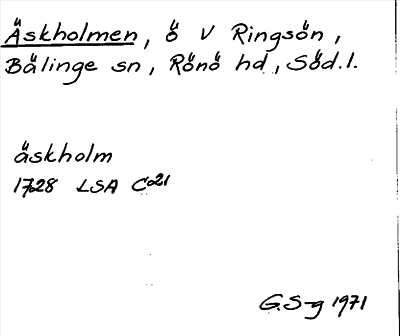 Äskholmen, ö V Ringsön,
Bälinge sn, Rönö hd, Söd.l.
äskholm
1728 LSA C21
G.S-g 1971